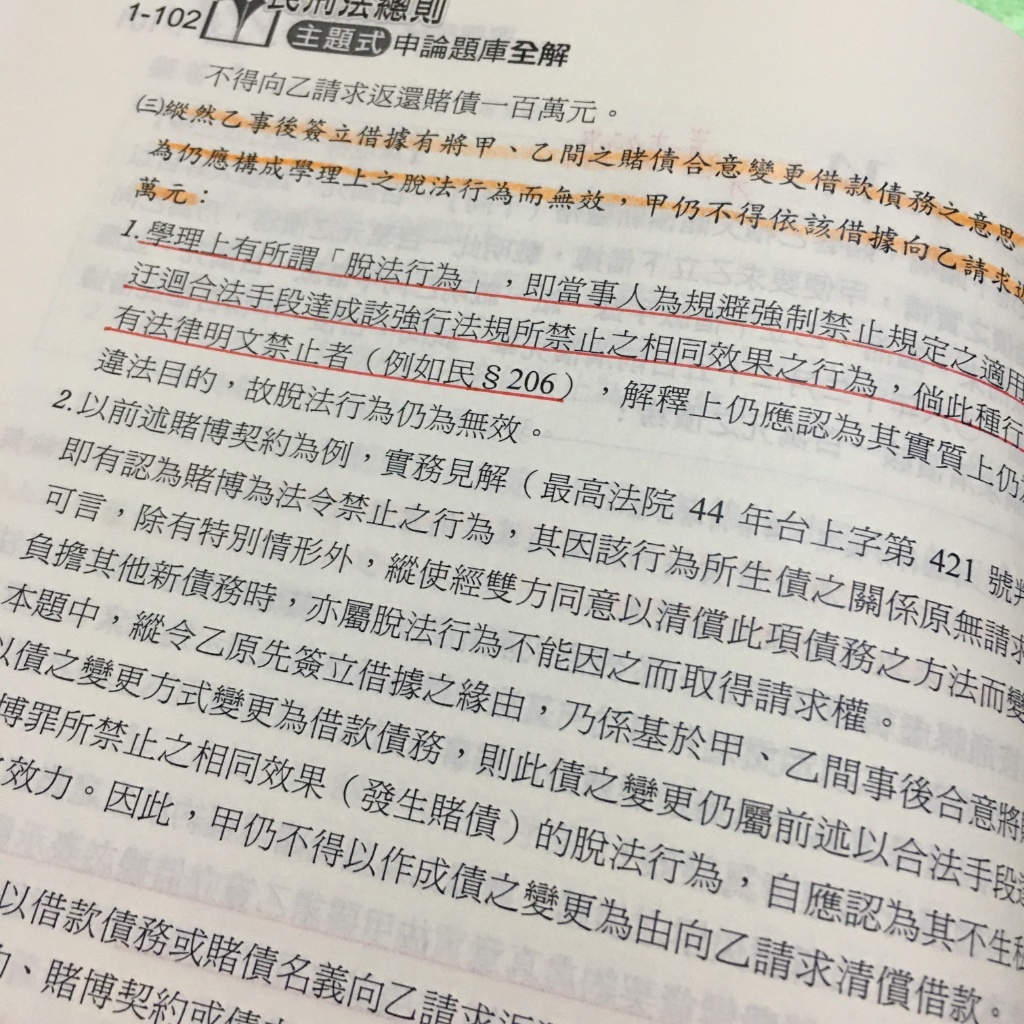 1-102 民刑法總則
主題式 申論題庫全解
不得向乙請求返還賭債一百萬元。
㈢縱然乙事後簽立借據有將甲、乙間之賭債合意變更借款債務之意思
為仍應構成學理上之脫法行為而無效，甲仍不得依該借據向乙請求
萬元：
1.學理上有所謂「脫法行為」，即當事人為規避強制禁止規定之適用
迂迴合法手段達成該強行法規所禁止之相同效果之行為，倘此種行
有法律明文禁止者（例如民§206），解釋上仍應認為其實質上仍
違法目的，故脫法行為仍為無效。
2.以前述賭博契約為例，實務見解（最高法院 44 年台上字第 421 號判
即有認為賭博為法令禁止之行為，其因該行為所生債之關係原無請求
可言，除有特別情形外，縱使經雙方同意以清償此項債務之方法而變
負擔其他新債務時，亦屬脫法行為不能因之而取得請求權。
本題中，縱令乙原先簽立借據之緣由，乃係基於甲、乙間事後合意將
以債之變更方式變更為借款債務，則此債之變更仍屬前述以合法手段
博罪所禁止之相同效果（發生賭債）的脫法行為，自應認為其不生
效力。因此，甲仍不得以作成債之變更為由向乙請求清償借款。
以借款債務或賭債名義向乙請求返
、賭博契約或債